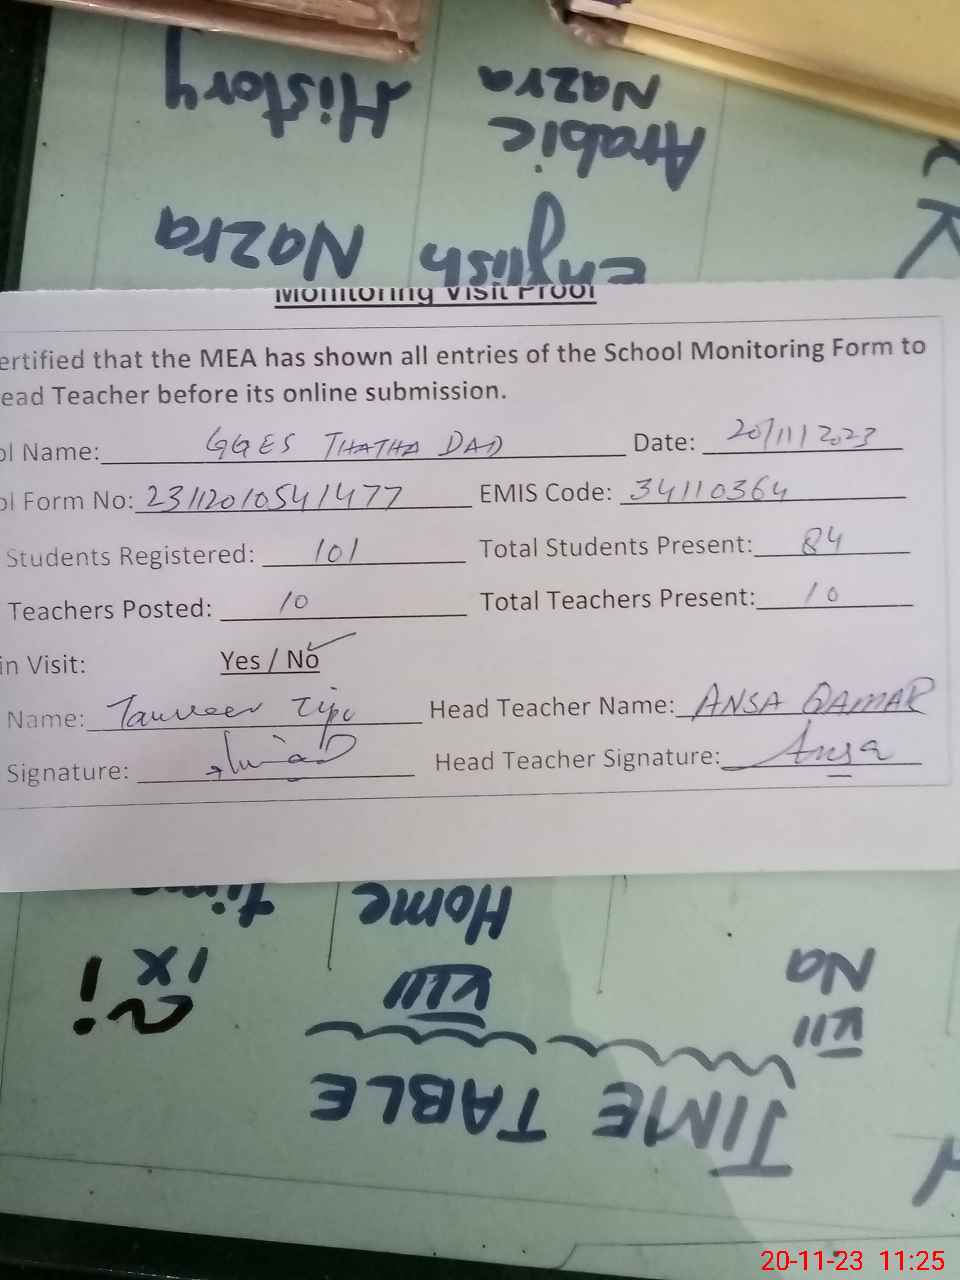 History
Nazra
Arabic
Nazra
English
Monitoring Visit Proof
ertified that the MEA has shown all entries of the School Monitoring Form to
ead Teacher before its online submission.
ol Name: GGES THATHA DAD Date: 20/11/2023
ol Form No: 23112010541477 EMIS Code: 34110364
Students Registered: 101 Total Students Present: 84
Teachers Posted: 10 Total Teachers Present: 10
in Visit: Yes / No
Name: Tanveer Tipu Head Teacher Name: ANSA QAMAR
Signature: Head Teacher Signature: Ansa
Home time
IX VIII Na
VIII
TIME TABLE
20-11-23 11:25